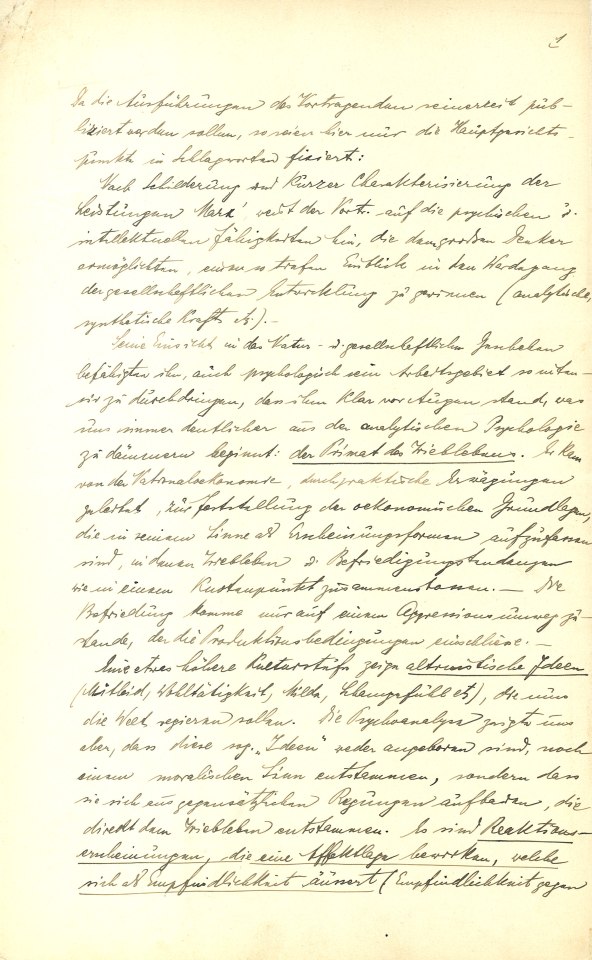 1
Da die Ausführungen des Vortragenden seinerzeit pub-
liziert werden sollen, so seien hier nur die Hauptgesichts-
punkte in Schlagworten fixiert:
Nach Schilderung und kurzer Charakterisierung der
Leistungen Marx' weist der Vortr. auf die psychischen u.
intellektuellen Fähigkeiten hin, die dem großen Denker
ermöglichten, einen so tiefen Einblick in den Werdegang
der gesellschaftlichen Entwicklung zu gewinnen (analytische,
synthetische Kraft etc.). –
Seine Einsicht in das Natur- u. gesellschaftlichen Geschehen
befähigten ihn, auch psychologisch sein Arbeitsgebiet so inten-
siv zu durchdringen, dass ihm klar vor Augen stand, was
uns immer deutlicher aus der analytischen Psychologie
zu dämmern beginnt: der Primat des Trieblebens. Er kam
von der Nationaloekonomie, durch praktische Erwägungen
geleitet, zur Feststellung der oekonomischen Grundlagen,
die in seinem Sinne als Erscheinungsformen aufzufassen
sind, in denen Triebleben u. Befriedigungstendenzen
wie in einem Knotenpunkt zusammenstossen. – Die
Befriedung komme nur auf einem Aggressionsumweg zu-
stande, der die Produktionsbedingungen einschliesse. –
Eine etwas höhere Kulturstufe zeige altruistische Ideen
(Mitleid, Wohltätigkeit, Milde, Schamgefühl etc), die nun
die Welt regieren sollen. Die Psychoanalyse zeigte uns
aber, dass diese sog. „Ideen" weder angeboren sind, noch
einem moralischen Sinn entstammen, sondern dass
sie sich aus gegensätzlichen Regungen aufbauen, die
direkt dem Triebleben entstammen. Es sind Reaktions-
erscheinungen, die eine Affektlage bewirken, welche
sich als Empfindlichkeit äussert (Empfindlichkeit gegen